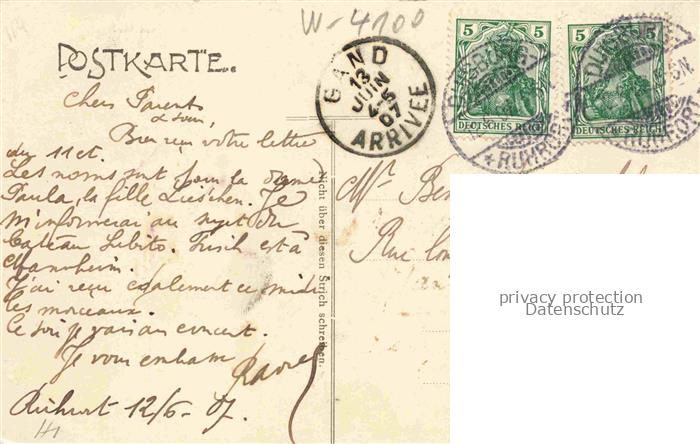 W-4100
POSTKARTE.
GAND
13
JUIN
07
ARRIVÉE
5 5
DEUTSCHES REICH
5 5
DEUTSCHES REICH
DUISBURG
RUHRORT
Chers Parents
& soeur,
Bien reçu votre lettre
du 11 ct.
Les noms sont pour la dame
Paula, la fille Lieschen. Je
m'informerai au sujet du
bateau Libito. Frisch est à
Mannheim.
J'ai reçu également ce midi
les morceaux.
Ce soir je vais au concert.
Je vous embrasse
Ruhrort 12/6-07.
Nicht über diesen Strich schreiben.
Mr Ben
Rue
privacy protection
Datenschutz